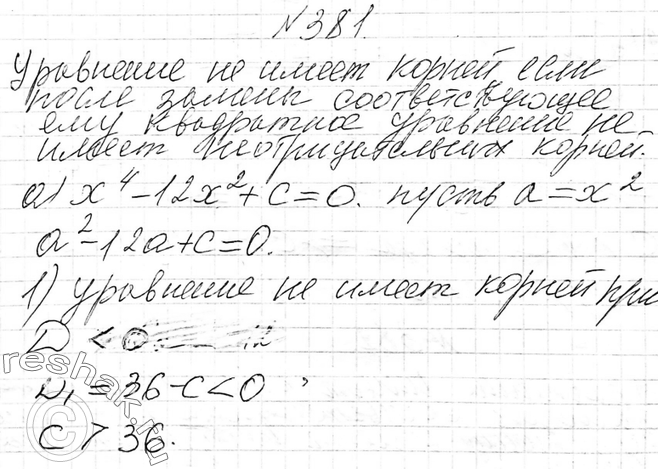 №381.
Уравнение не имеет корней если
после замены соответствующее
ему квадратное уравнение не
имеет неотрицательных корней.
а) x⁴-12x²+c=0. пусть a=x²
a²-12a+c=0.
1) уравнение не имеет корней при
D<0
D₁=36-c<0
c>36.
reshak.ru